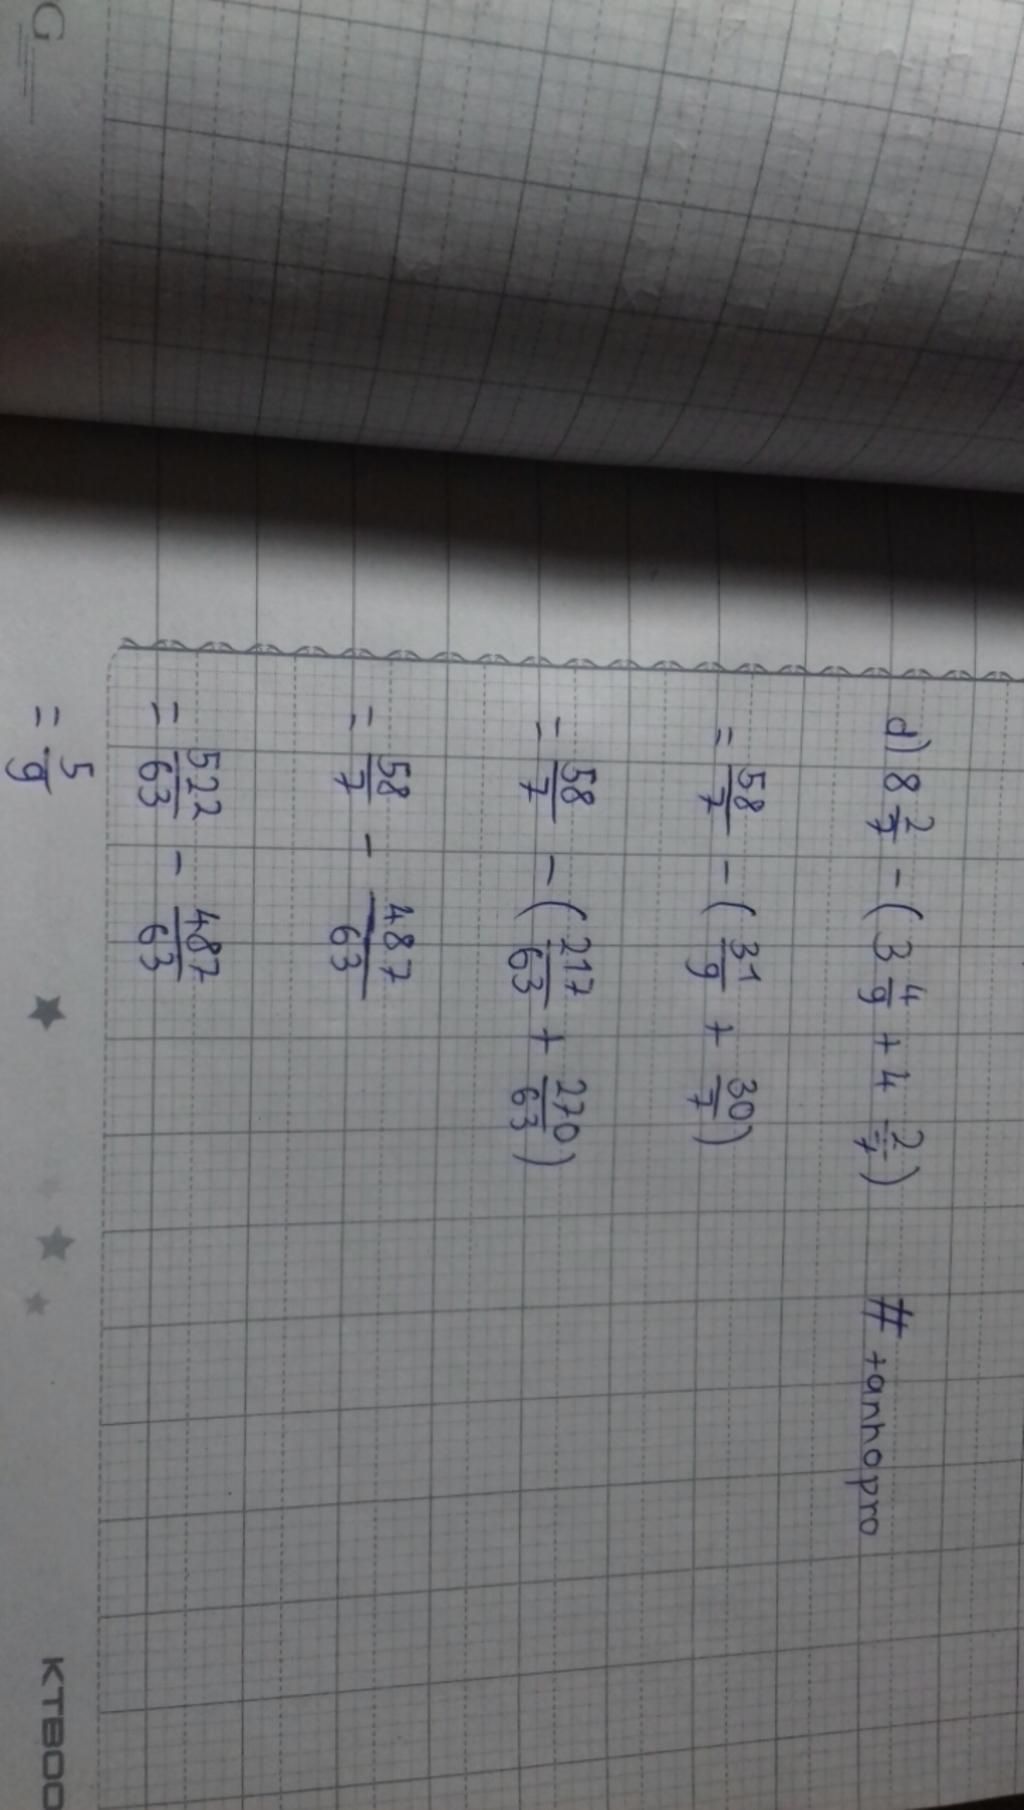 d) 8 2/7 - (3 4/9 + 4 2/7) # tanhopro
= 58/7 - (31/9 + 30/7)
= 58/7 - (217/63 + 270/63)
= 58/7 - 487/63
= 522/63 - 487/63
= 5/9
KTBOO
G